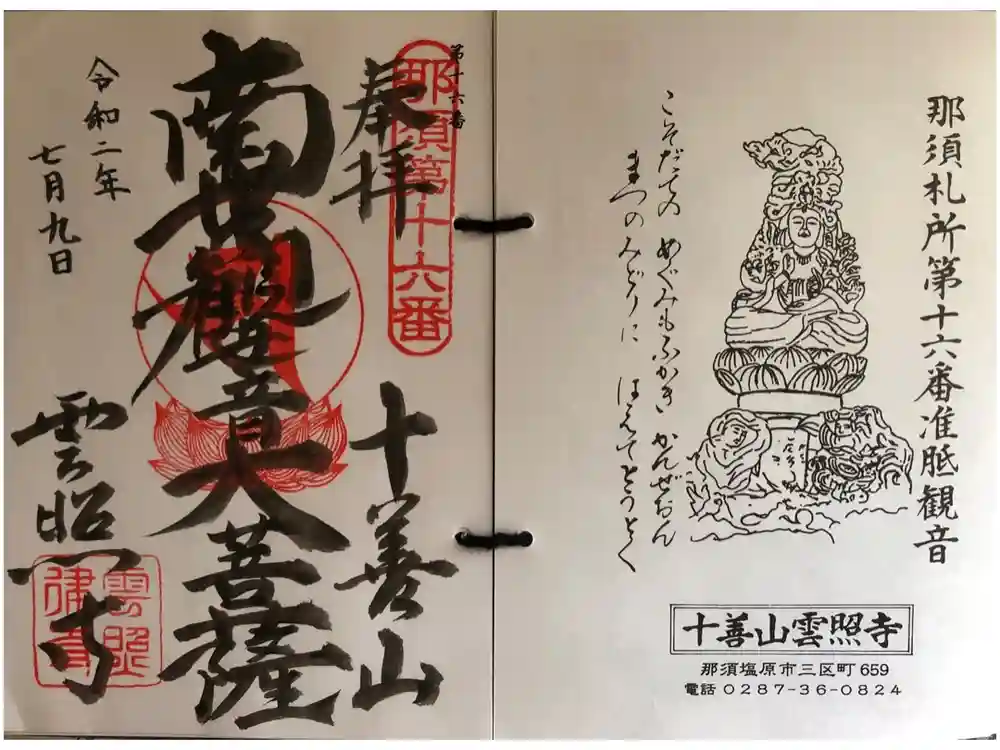 那須札所第十六番准胝観音
こそだての めぐみもふかき かんぜおん
まつのみどりに はえてとうとく
十善山雲照寺
那須塩原市三区町 659
電話 0287-36-0824
第十六番
那須第十六番
奉拝
十善山
南無観世音大菩薩
令和二年
七月九日
雲照寺